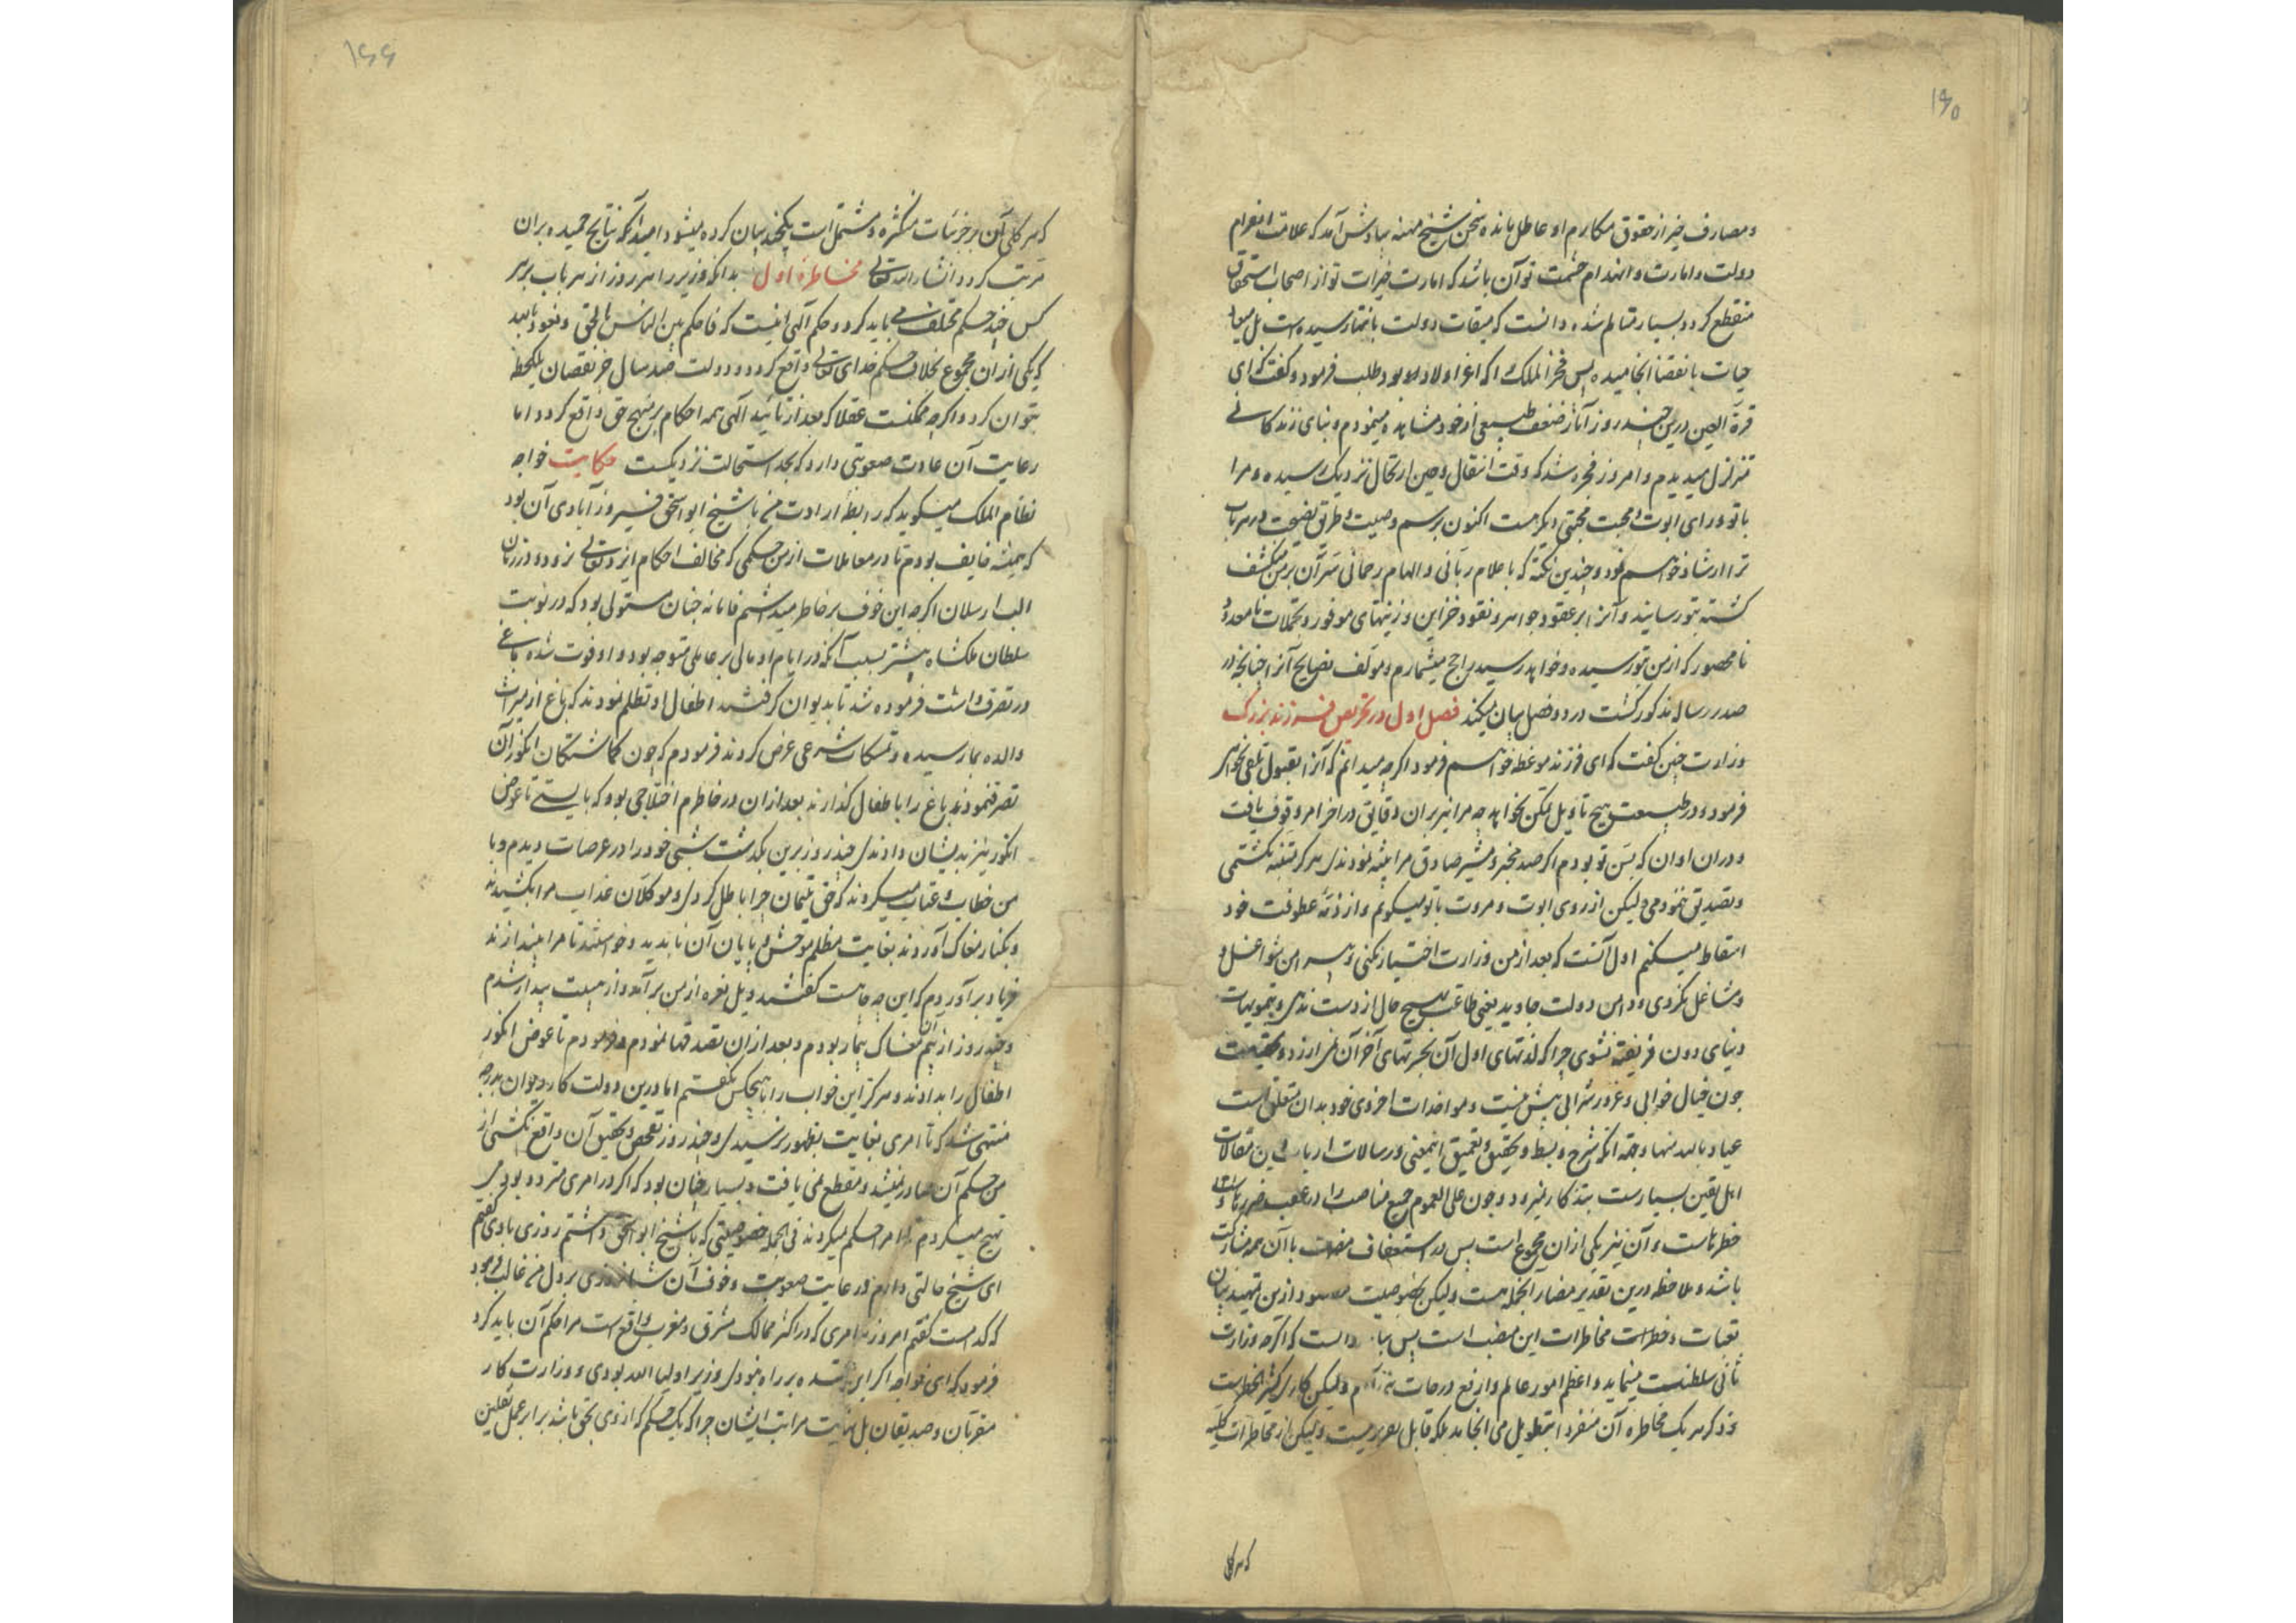 ۱۶۵
ومصارف خیر از حقوق مکارم او عاطل مانده سخن شیخ مهنه بیادش آمد که علامت انصرام
دولت و امارت و انهدام حشمت تو آن باشد که امارت خیرات تو از اصحاب استحقاق
منقطع کردد بسیار متالم شده دانست که میقات دولت بانتها رسیده است بل میعاد
حیات بانقضا انجامیده پس فخر الملک را که اعز اولاد او بود طلب فرمود و کفت که ای
قرة العین درین چند روز آثار ضعف طبیعی از خود مشاهده مینمودم و بنای زندکانی
متزلزل میدیدم و امروز شد که وقت انتقال و حین ارتحال نزدیک رسیده و مرا
با تو ورای ابوت و محبت محبتی دیکر هست اکنون برسم وصیت و طریق نصیحت در هر باب
ترا ارشاد خواهم نمود و چندین نکته که باعلام ربانی و الهام رحمانی سر آن بر من منکشف
کشته بتو رسانید و آنرا بر عقود جواهر و نقود خزاین و زینتهای موفور و تجملات نامعدود
نامحصور که از من بتو رسیده و خواهد رسید راجح میشمارم و مولف نصایح آنرا چنانچه در
صدر رساله مذکور کشت در دو فصل بیان میکند فصل اول در تحریص فرزند بزرک
وزارت چنین کفت که ای فرزند موعظه خواهم فرمود اکرچه میدانم که آنرا بقبول تلقی نخواهی
فرمود و در طبیعت هیچ تاویل تمکن نخواهد چه مرا نیز بران دقایق در اخر امر وقوف یافت
و دران اوان که بسن تو بودم اکر صد مخبر و مشیر صادق مرا بیشه نمودندی هرکز متنبه نکشتمی
و تصدیق ننمودمی ولیکن از روی ابوت و مروت با تو میکویم و از ذمه عطوفت خود
اسقاط میکنم اول آنست که بعد از من وزارت اختیار نکنی و پیرامن شواغل و
مشاغل نکردی و دامن دولت جاوید یعنی طاعت بهیچ حال از دست ندهی و بتمویهات
دنیای دون فریفته نشوی چرا که لذتهای اول آن بحسرتهای آخر آن نمی ارزد و بحقیقت
چون خیال خوابی و غرور شرابی بیش نیست و مواخذات اخروی خود بدان متعلق است
عیاذ بالله منها و تتمه انکه شرح و بسط و تحقیق و تعمیق اینمعنی در رسالات ارباب دین و مقالات
اهل یقین بسیارست بتذکار نمیرود و چون علی العموم جمیع مناصب را در عقب ضررها و
خطرهاست و آن نیز یکی ازان مجموع است پس در استعفاف منصب با آن همه مشارکت
باشد و ملاحظه درین تقدیر مضار الجمله هست ولیکن بخصوصیت مقصود ازین تمهید بیان
تبعات و خطرات مخاطرات این منصب است پس بباید دانست که اکرچه وزارت
ثانی سلطنت مینماید و اعظم امور عالم و ارفع درجات بنی آدم ولیکن کاری کثیر الخطرست
و ذکر هر یک مخاطره آن منفرد بتطویل می انجامد بلکه قابل تحریر نیست ولیکن از مخاطرات کلیه
که هر کلی
۱۶۶
که هر کلی آن بر جزئیات متکثره مشتمل است یکچند بیان کرده میشود امید آنکه نتایج حمیده بران
مرتب کردد انشاء الله تعالی مخاطره اول بدانکه وزیر را هر روز از هر باب بر هر
کس چند حکم مختلف می باید کرد و حکم الهی اینست که فاحکم بین الناس بالحق و نعوذ بالله
که یکی ازان مجموع بخلاف حکم خدای تعالی واقع کردد و دولت صد سال جبر نقصان یکلحظه
نتوان کرد و اکرچه ممکنست عقلا که بعد از تائید الهی همه احکام بر نهج حق واقع کردد اما
رعایت آن عادت صعوبتی دارد که بحد استحالت نزدیکست حکایت خواجه
نظام الملک میکوید که رابطه ارادت من با شیخ ابو اسحق فیروزآبادی آن بود
که همیشه خایف بودم تا در معاملات از من حکمی که مخالف احکام ایزد تعالی نرود و در زمان
الب ارسلان اکرچه این خوف بر خاطر میداشتم فاما نه چنان مستولی بود که در نوبت
سلطان ملکشاه بیشتر بسبب آنکه در ایام او مالی بر عاملی متوجه بود و او فوت شده باغی
در تصرف داشت فرموده شد تا بدیوان کرفتند اطفال او تظلم نمودند که باغ از میراث
والده بما رسیده و تمسکات شرعی عرض کردند فرمودم که چون کماشتکان انکور آن
تصرف نموده اند باغ را باطفال کذارند بعد ازان در خاطرم اختلاجی بود که بایستی تا عوض
انکور نیز بدیشان دادندی چند روز برین بکذشت شبی خود را در عرصات دیدم و با
من خطاب و عتاب میکردند که حق یتیمان چرا باطل کردی و موکلان عذاب مرا بکشیدند
و بکنار مغاکی آوردند بغایت مظلم موحش و پایان آن ناپدید و خواستند تا مرا بیندازند
فریاد برآوردم که این چه جاست کفتند ویل نعره از من برآمد و از هیبت بیدار شدم
و چند روز از بیم آن مغاک بیمار بودم و بعد ازان تصدقها نمودم و فرمودم تا عوض انکور
اطفال را بدادند و هرکز این خواب را با هیچکس نکفتم اما درین دولت کار دیوان بدرجه
منتهی شد که تا امری بغایت بظهور نرسیدی و چند روز تفحص و تحقیق آن واقع نکشتی از
من حکم آن صادر نمیشد و مقطع نمی یافت و بسیار چنان بود که اکر در امری متردد بودمی
تهیج میکردم تا امرا حکم میکردند فی الجمله خصوصیتی که با شیخ ابو اسحق داشتم روزی با وی کفتم
ای شیخ حالتی دارم در عایت صعوبت و خوف آن شبانروزی بر دل من غالب فرمود
که کدامست کفتم امروز هر امری که در اکثر ممالک مشرق و مغرب واقع است مرا حکم آن باید کرد
فرمود که ای خواجه اکر این بنده بر راه بودی وزیر اولیاء الله بودی و وزارت کار
مقربان و صدیقان بل نهایت مراتب ایشان چرا که یک حکم که از وی بحق باشد برابر عمل ثقلین